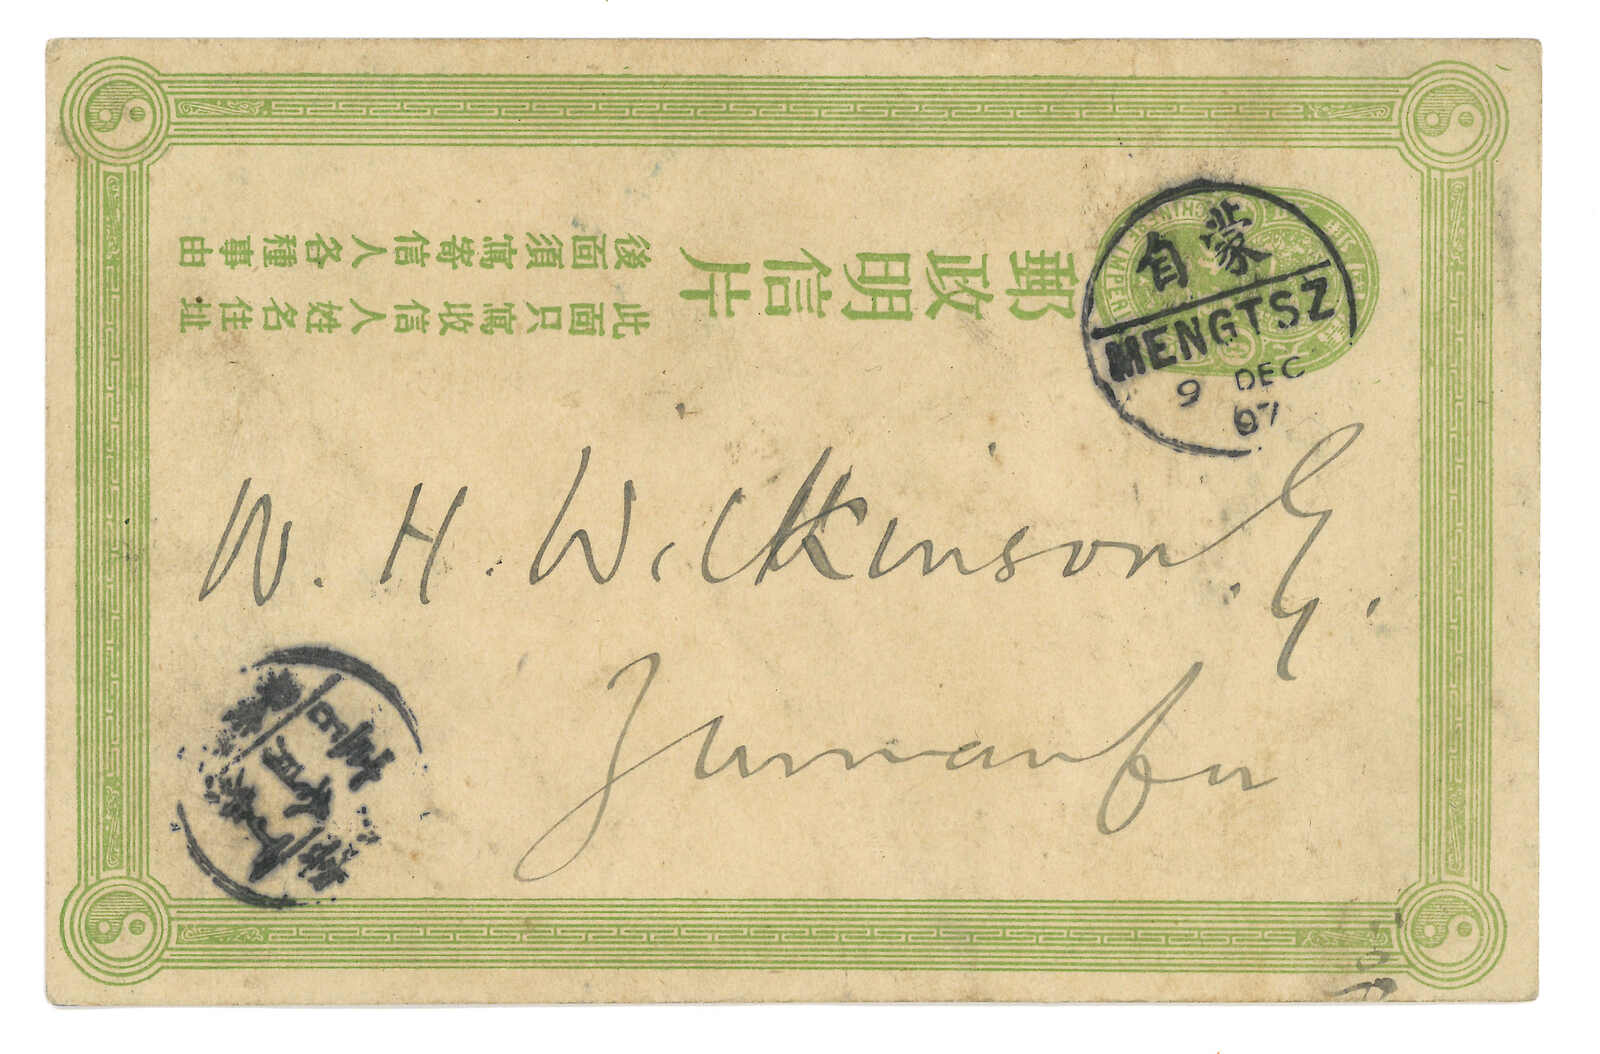 郵政明信片
此面只寫收信人姓名住址
後面須寫寄信人各種事由
蒙自
MENGTSZ
9 DEC
07
W. H. Wilkinson. E.
Yunnanfu